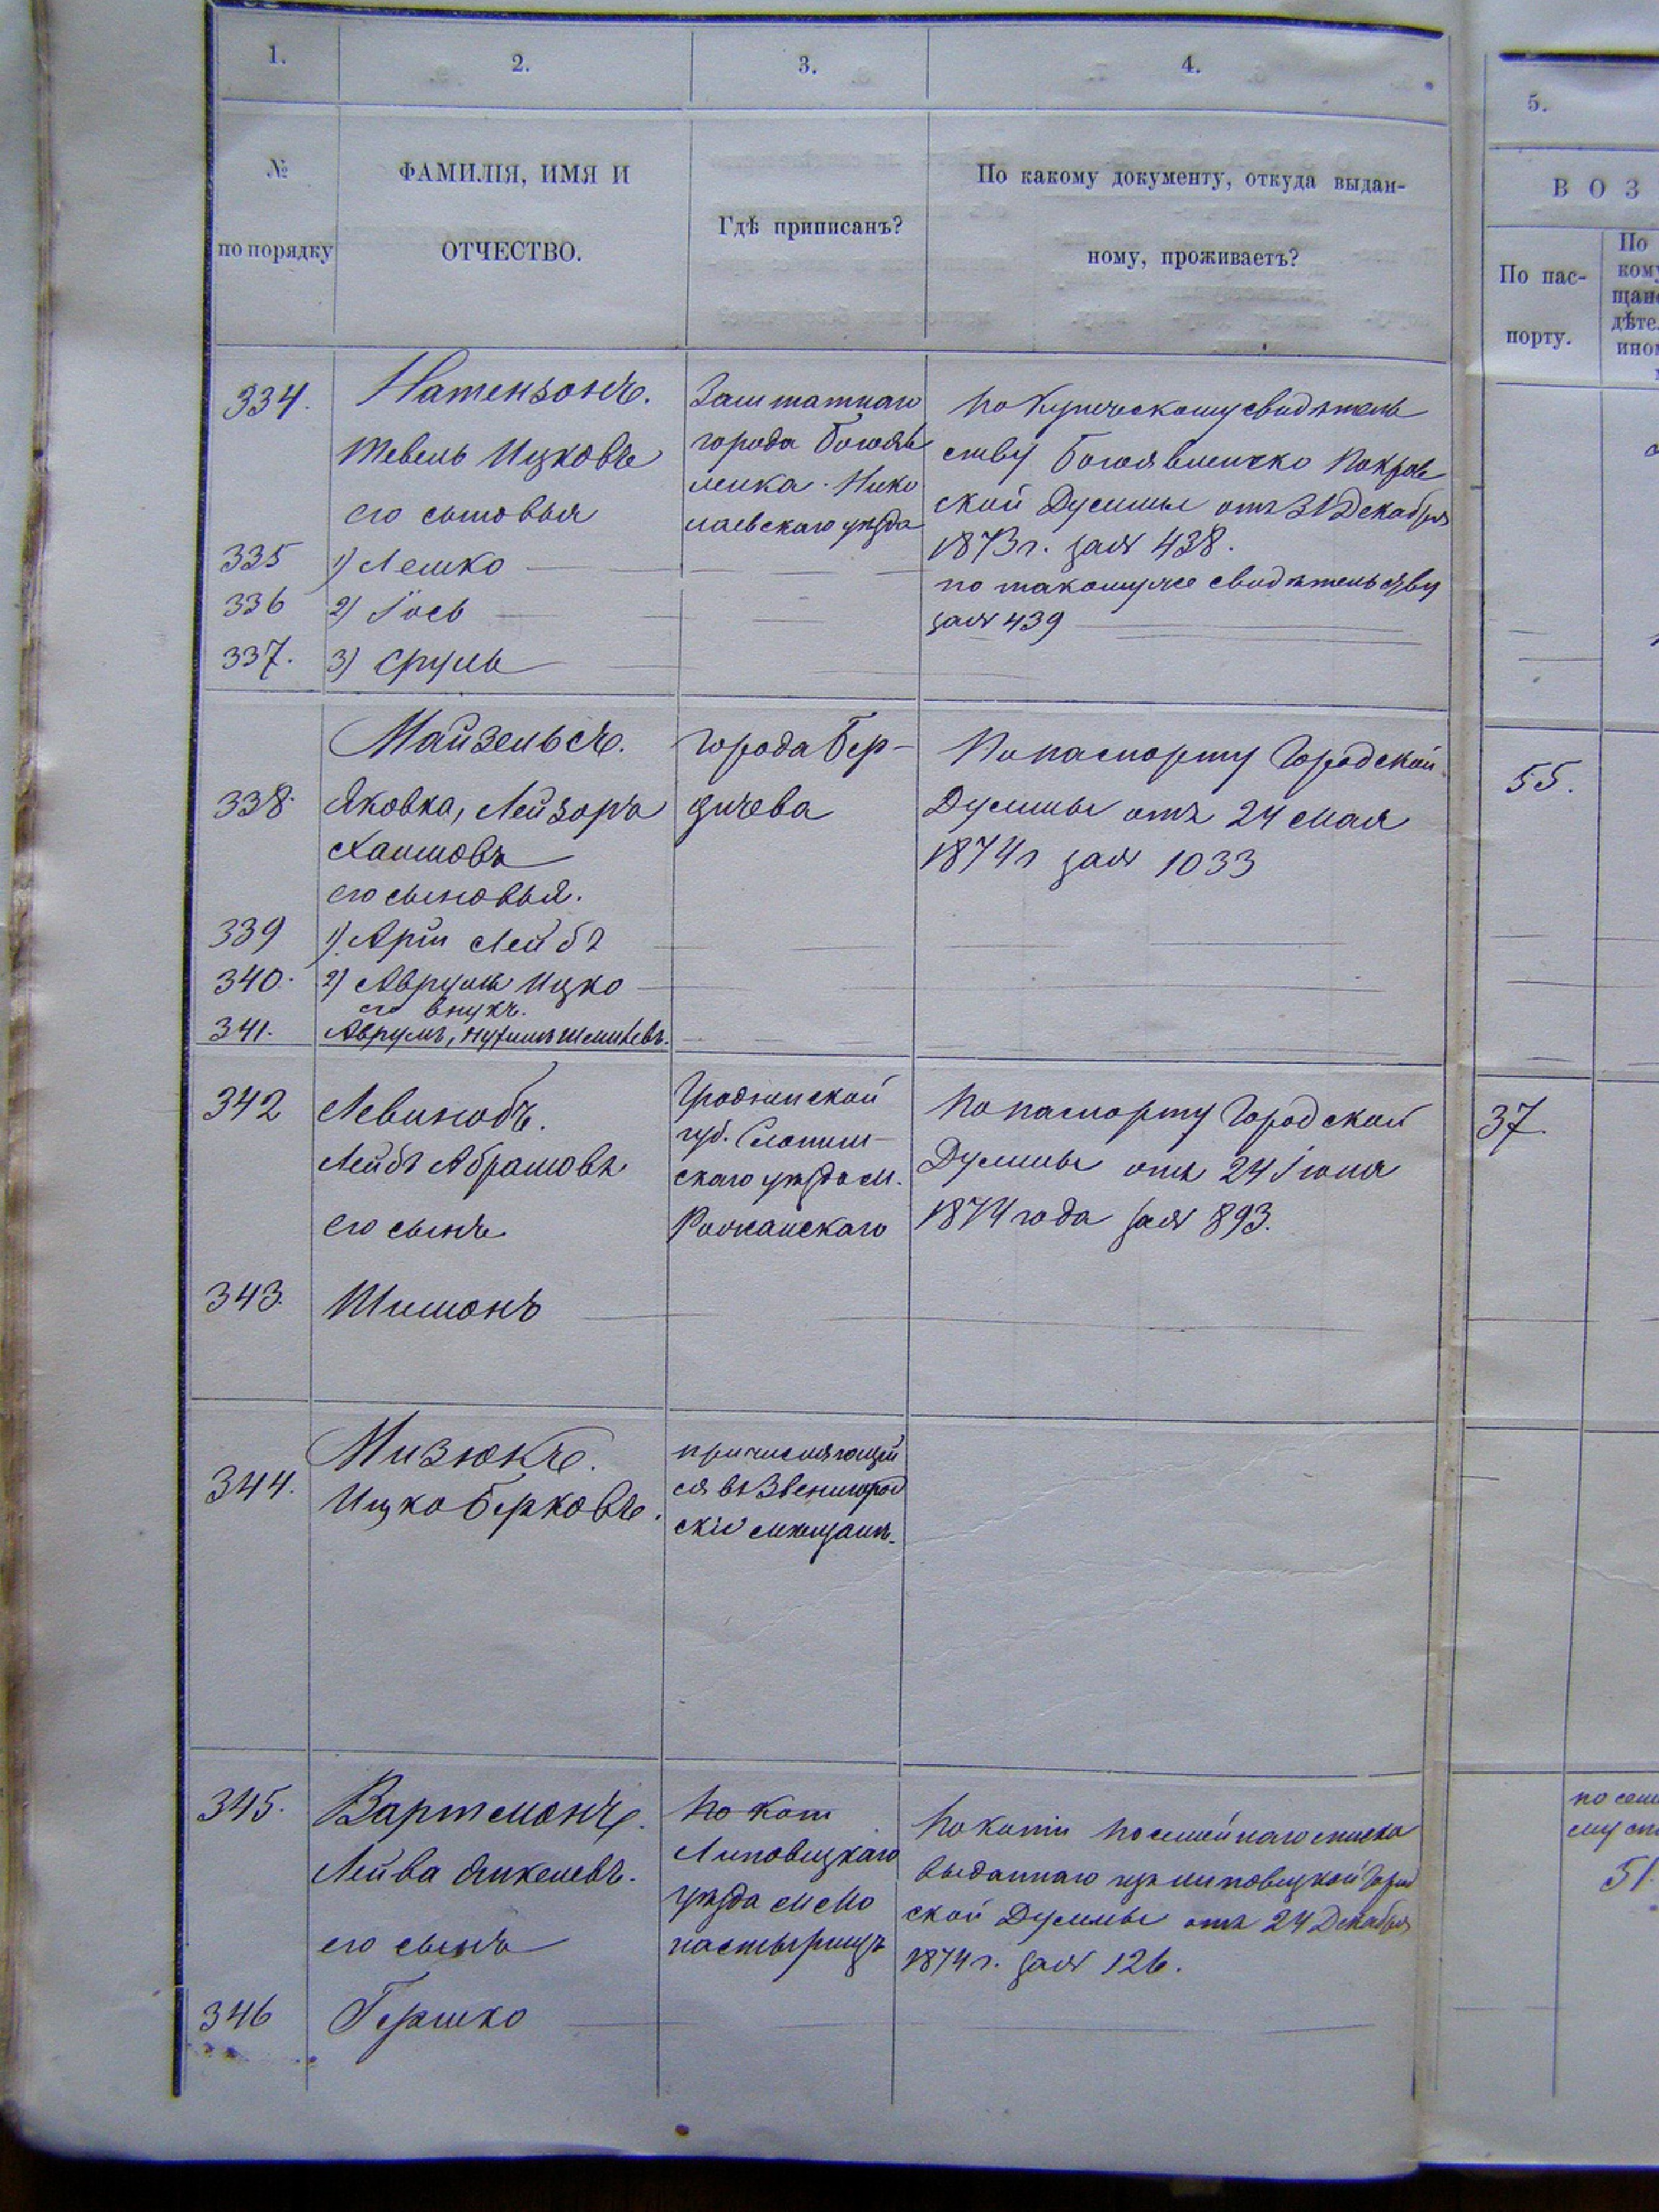 1.
2.
3.
4.
5.
№
по порядку
ФАМИЛІЯ, ИМЯ И
ОТЧЕСТВО.
Гдѣ приписанъ?
По какому документу, откуда выдан-
ному, проживаетъ?
В О З
По пас-
порту.
По
кому
щан
дѣте
ино
334.
Натензонъ.
Тевель Ицковъ
его сыновья
335
1) Лешко
336
2) Іось
337.
3) Сруль
Заштатнаго
города Богояв
ленка Нико
лаевскаго уѣзда
По Купеческому свидѣтель
ству Богоявленско Покров
ской Думы отъ 31 Декабря
1873 г. за № 438.
по такомуже свидѣтельству
за № 439
Майзельсъ.
338.
Яковка, Лейзоръ
Хаимовъ
его сыновья.
339
1) Арій Лейбъ
340.
2) Аврумъ Ицко
его внукъ.
341.
Аврумъ,
города Бер-
дичева
По паспорту Городской
Думы отъ 24 мая
1874 г за № 1033
55.
342
Левинобъ.
Лейбъ Абрамовъ
его сынъ
343.
Шимонъ
Гродненской
губ. Слоним-
скаго уѣзда м.
Рожанскаго
По паспорту Городской
Думы отъ 24 Іюня
1874 года за № 893.
37.
344.
Мизюкъ.
Ицко Берковъ.
причисляющій
ся въ Звенигород
скіе мѣщане.
345.
Вартсмонъ.
Лейба Янкелевъ.
его сынъ
346
Гершко
Липовецкаго
уѣзда м Мо
настырищъ
По копіи посемейнаго списка
выданнаго изъ Липовецкой Город
ской Думы отъ 24 Декабря
1874 г. за № 126.
по сем
му сп
51.